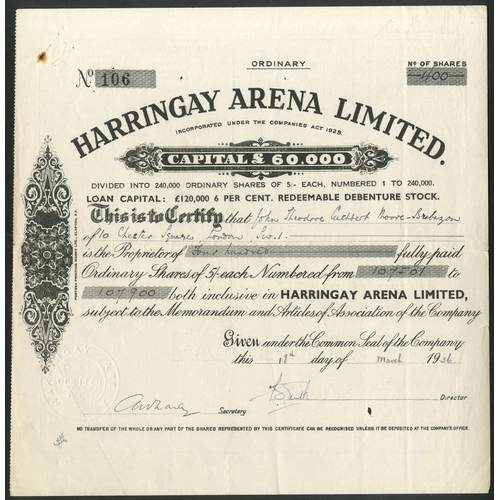 ORDINARY
No. OF SHARES
No 106
400
HARRINGAY ARENA LIMITED.
INCORPORATED UNDER THE COMPANIES ACT 1929.
CAPITAL £ 60,000
DIVIDED INTO 240,000 ORDINARY SHARES OF 5/- EACH, NUMBERED 1 TO 240,000.
LOAN CAPITAL: £120,000 6 PER CENT. REDEEMABLE DEBENTURE STOCK.
This is to Certify that John Theodore Cuthbert Moore-Brabazon
of 10 Chester Square, London, S.W.1.
is the Proprietor of Four hundred fully paid
Ordinary Shares of 5/- each Numbered from 107501 to
107900 both inclusive in HARRINGAY ARENA LIMITED,
subject to the Memorandum and Articles of Association of the Company
Given under the Common Seal of the Company
this 18th day of March 1936
Director
Secretary
NO TRANSFER OF THE WHOLE OR ANY PART OF THE SHARES REPRESENTED BY THIS CERTIFICATE CAN BE RECOGNISED UNLESS IT BE DEPOSITED AT THE COMPANY'S OFFICE.